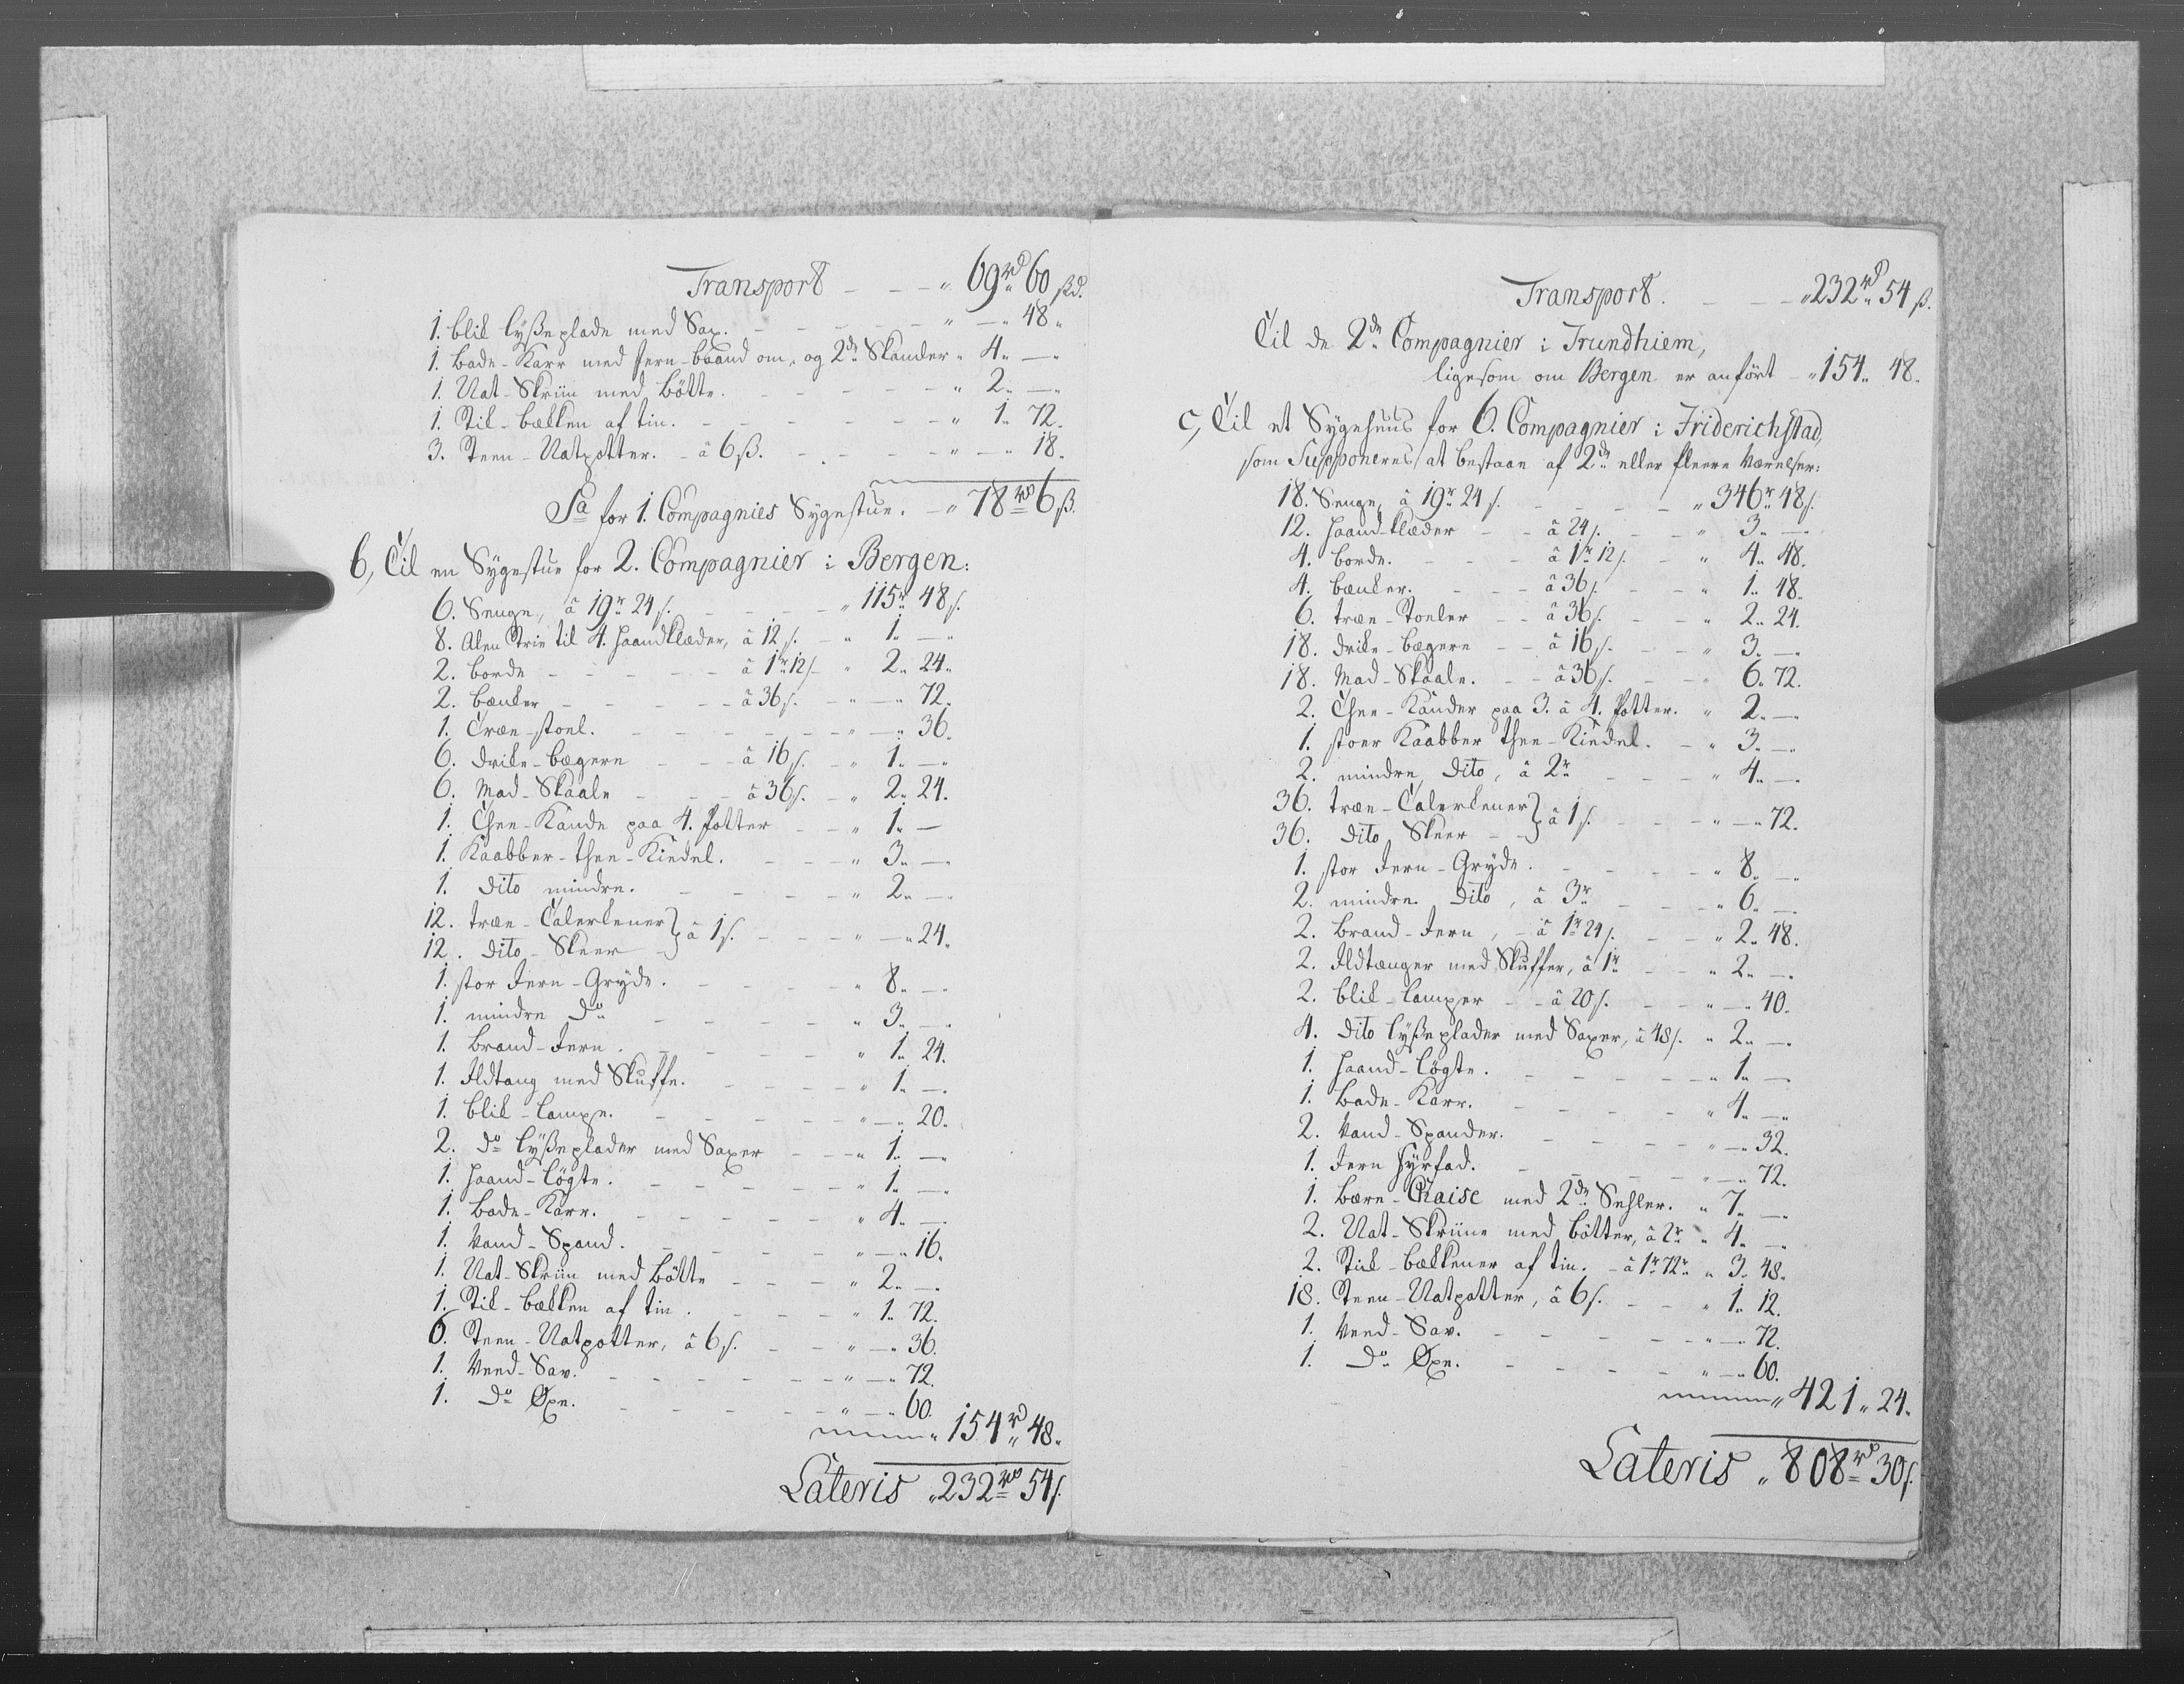 Transport - - - „ 69 rd 60 ßd.
1. blik lyßeplade med Sax. - - - - „ — „ 48 „
1. bade-Karr med Jern-baand om, og 2de Skander „ 4 „ — „
1. Nat-Skriin med bötte. - - - - „ 2 „ — „
1. Stik-bækken af tin. - - - - „ 1 „ 72.
3. Steen-Natpotter. - â 6 ß. - - - „ — „ 18.
Sa for 1. Compagnies Sygestue. - „ 78 rd 6 ß.
b, Til en Sygestue for 2. Compagnier i Bergen:
6. Senge, â 19 r 24 s. - - - „ 115 r 48 s.
8. Alen Strie til 4. Haandklæder, â 12 s. - „ 1 „ — „
2. borde - - - - - â 1 r 12 s - „ 2 „ 24 „
2. bænker - - - - - â 36 s. - „ — „ 72.
1. Træe-stoel. - - - - - - „ — „ 36.
6. drike-bægere - - â 16 s. - „ 1 „ — „
6. Mad-Skaale - - - â 36 s. - „ 2 „ 24.
1. Thee-Kande paa 4. Potter - - „ 1 „ —
1. Kaabber-thee-Kiedel. - - - „ 3 „ — „
1. dito mindre. - - - - „ 2 „ — „
12. træe-Talerkener } â 1 s. - - - „ — „ 24 „
12. dito-Skeer
1. stor Jern-Gryde. - - - - „ 8 „ — „
1. mindre do - - - - „ 3 „ — „
1. brand-Jern. - - - - „ 1 „ 24.
1. Ildtang med Skuffe. - - - - „ 1 „ — „
1. blik-lampe. - - - - - „ — „ 20.
2. do lyßeplader med Saxer - - „ 1 „ — „
1. Haand-løgte. - - - - - „ 1 „ — „
1. bade-Karr. - - - - „ 4 „ — „
1. Vand-Spand. - - - - „ — „ 16.
1. Nat-Skriin med bötte - - - „ 2 „ — „
1. Stik-bækken af tin. - - - „ 1 „ 72.
6. Steen-Natpotter, â 6 s. - - „ — „ 36.
1. Veed-Sav. - - - - - „ — „ 72.
1. do Øxe. - - - - - „ — „ 60.
„ 154 rd 48 „
Lateris „ 232 rd 54 s.
Transport. - - - „ 232 rd 54 ß.
Til de 2de Compagnier i Trundhiem,
ligesom om Bergen er anført - „ 154 „ 48.
c, Til et Sygehuus for 6. Compagnier i Friderichstad,
som Supponeres at bestaae af 2de eller fleere Værelser:
18. Senge, â 19 r 24 s. - - - - „ 346 r 48 s.
12. Haand-klæder - - â 24 s. - - „ 3 „ — „
4. borde. - - - â 1 r 12 s. - „ 4 „ 48.
4. bænker. - - - â 36 s. - - „ 1 „ 48.
6. træe-Stoeler - - â 36 s. - - „ 2 „ 24.
18. drike-bægere - - â 16 s. - - „ 3 „ — „
18. Mad-Skaale. - - â 36 s. - - „ 6 „ 72.
2. Thee-Kander paa 3. â 4. Potter. „ 2 „ — „
1. stoer Kaabber thee-Kiedel. - „ 3 „ — „
2. mindre, dito, â 2 r - - - „ 4 „ — „
36. træe-Talerkener } â 1 s. - - - „ — „ 72.
36. dito Skeer
1. stor Jern-Gryde. - - - - „ 8 „ — „
2. mindre dito, â 3 r - - - „ 6 „ — „
2. brand-Jern, - â 1 r 24 s. - - „ 2 „ 48.
2. Ildtænger med Skuffer, â 1 r - - „ 2 „ — „
2. blik-lamper - - â 20 s. - - „ — „ 40.
4. dito lyßeplader med Saxer, â 48 s. „ 2 „ — „
1. Haand-løgte. - - - - - „ 1 „ —
1. bade-Karr. - - - - „ 4 „ — „
2. Vand-Spander. - - - - „ — „ 32.
1. Jern Fyrfad. - - - - „ — „ 72.
1. bære-Chaise med 2de Sehler. „ 7 „ —
2. Nat-Skriine med bötter, â 2 r „ 4 „ — „
2. Stik-bækkener af tin. - â 1 r 72 r „ 3 „ 48.
18. Steen-Natpotter, â 6 s. - - „ 1 „ 12.
1. Veed-Sav. - - - - - „ — „ 72.
1. do Øxe. - - - - „ — „ 60.
„ 421 „ 24.
Lateris „ 808 rd 30 s.